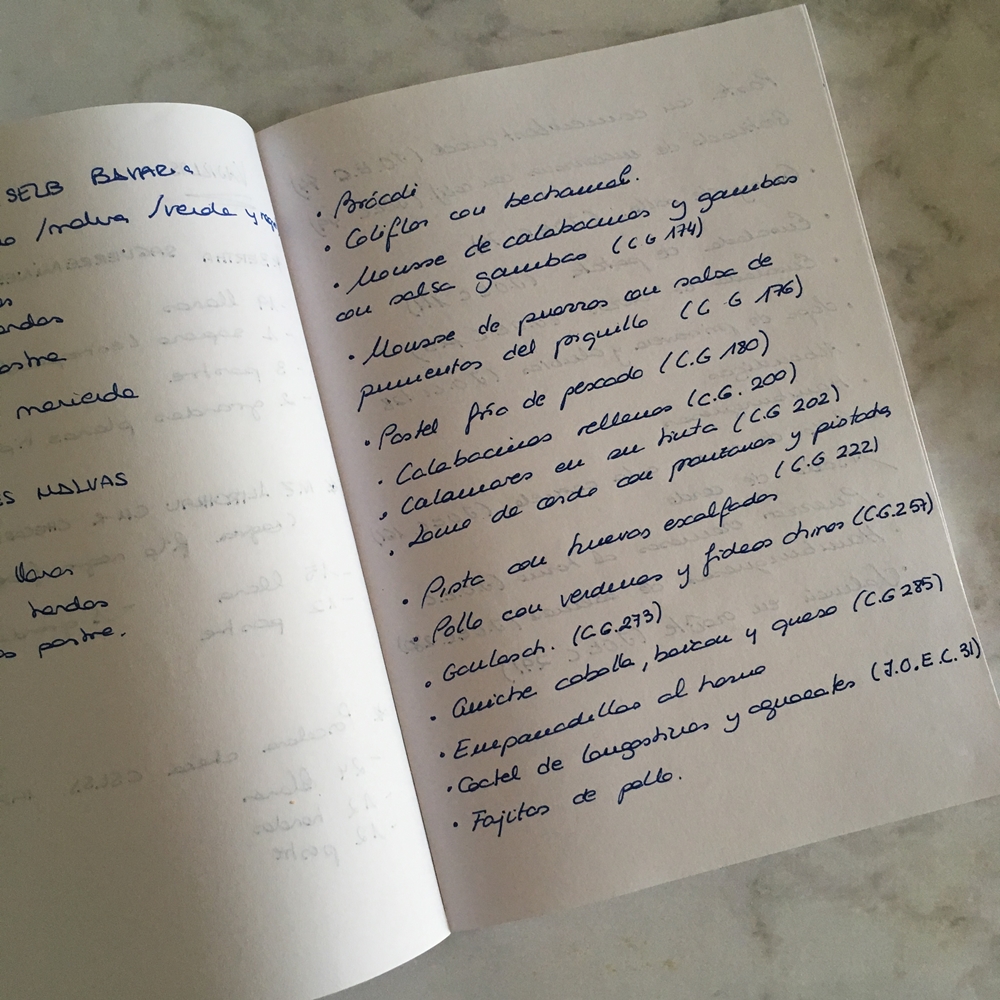 SELB BAVARIA
/malva /verde y
hondas
postre
merienda
MALVAS
llanas
hondas
postre.
• Brócoli
• Coliflor con bechamel.
• Mousse de calabacines y gambas
con salsa gambas (C G 174)
• Mousse de puerros con salsa de
pimientos del piquillo (C G 176)
• Pastel frío de pescado (C.G 180)
• Calabacines rellenos (C.G. 200)
• Calamares en su tinta (C.G 202)
• Lomo de cerdo con manzanas y pistachos
(C.G 222)
• Pisto con huevos escalfados
• Pollo con verduras y fideos chinos (C.G.257)
• Goulasch. (C.G.273)
• Quiche cebolla, bacon y queso (C.G 285)
• Empanadillas al horno
• Coctel de langostinos y aguacates (J.O.E.C.31)
• Fajitas de pollo.